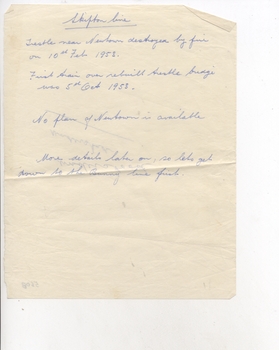 Skipton line
Trestle near Newtown destroyed by fire
on 10th Feb 1953.
First train over rebuilt trestle bridge
was 5th Oct 1953.
No plan of Newtown is available
More details later on, so lets get
down to the line first.